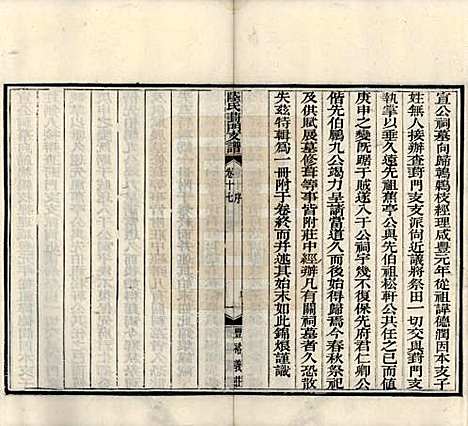 宣公祠墓向歸鶴鶴枝經理咸豐元年從祖諱德潤因本支子
姓無人接辦查葑門支支派尚近議將祭田一切交與葑門支
執掌以垂久遠先祖蕉亭公與先伯祖松軒公共任之已而値
庚申之變旣踞于賊遂入于公祠宇幾不復保先府君仁卿公
偕先伯鵬九公竭力呈請當道久而後始得歸焉今春秋祭祀
及供賦展墓修葺等事皆附莊中經辦凡有關祠墓者久恐散
失茲特輯爲一冊附于卷終而幷述其始末如此錦烺謹識
陸氏葑門支譜
卷十七
序
一
豐裕義莊